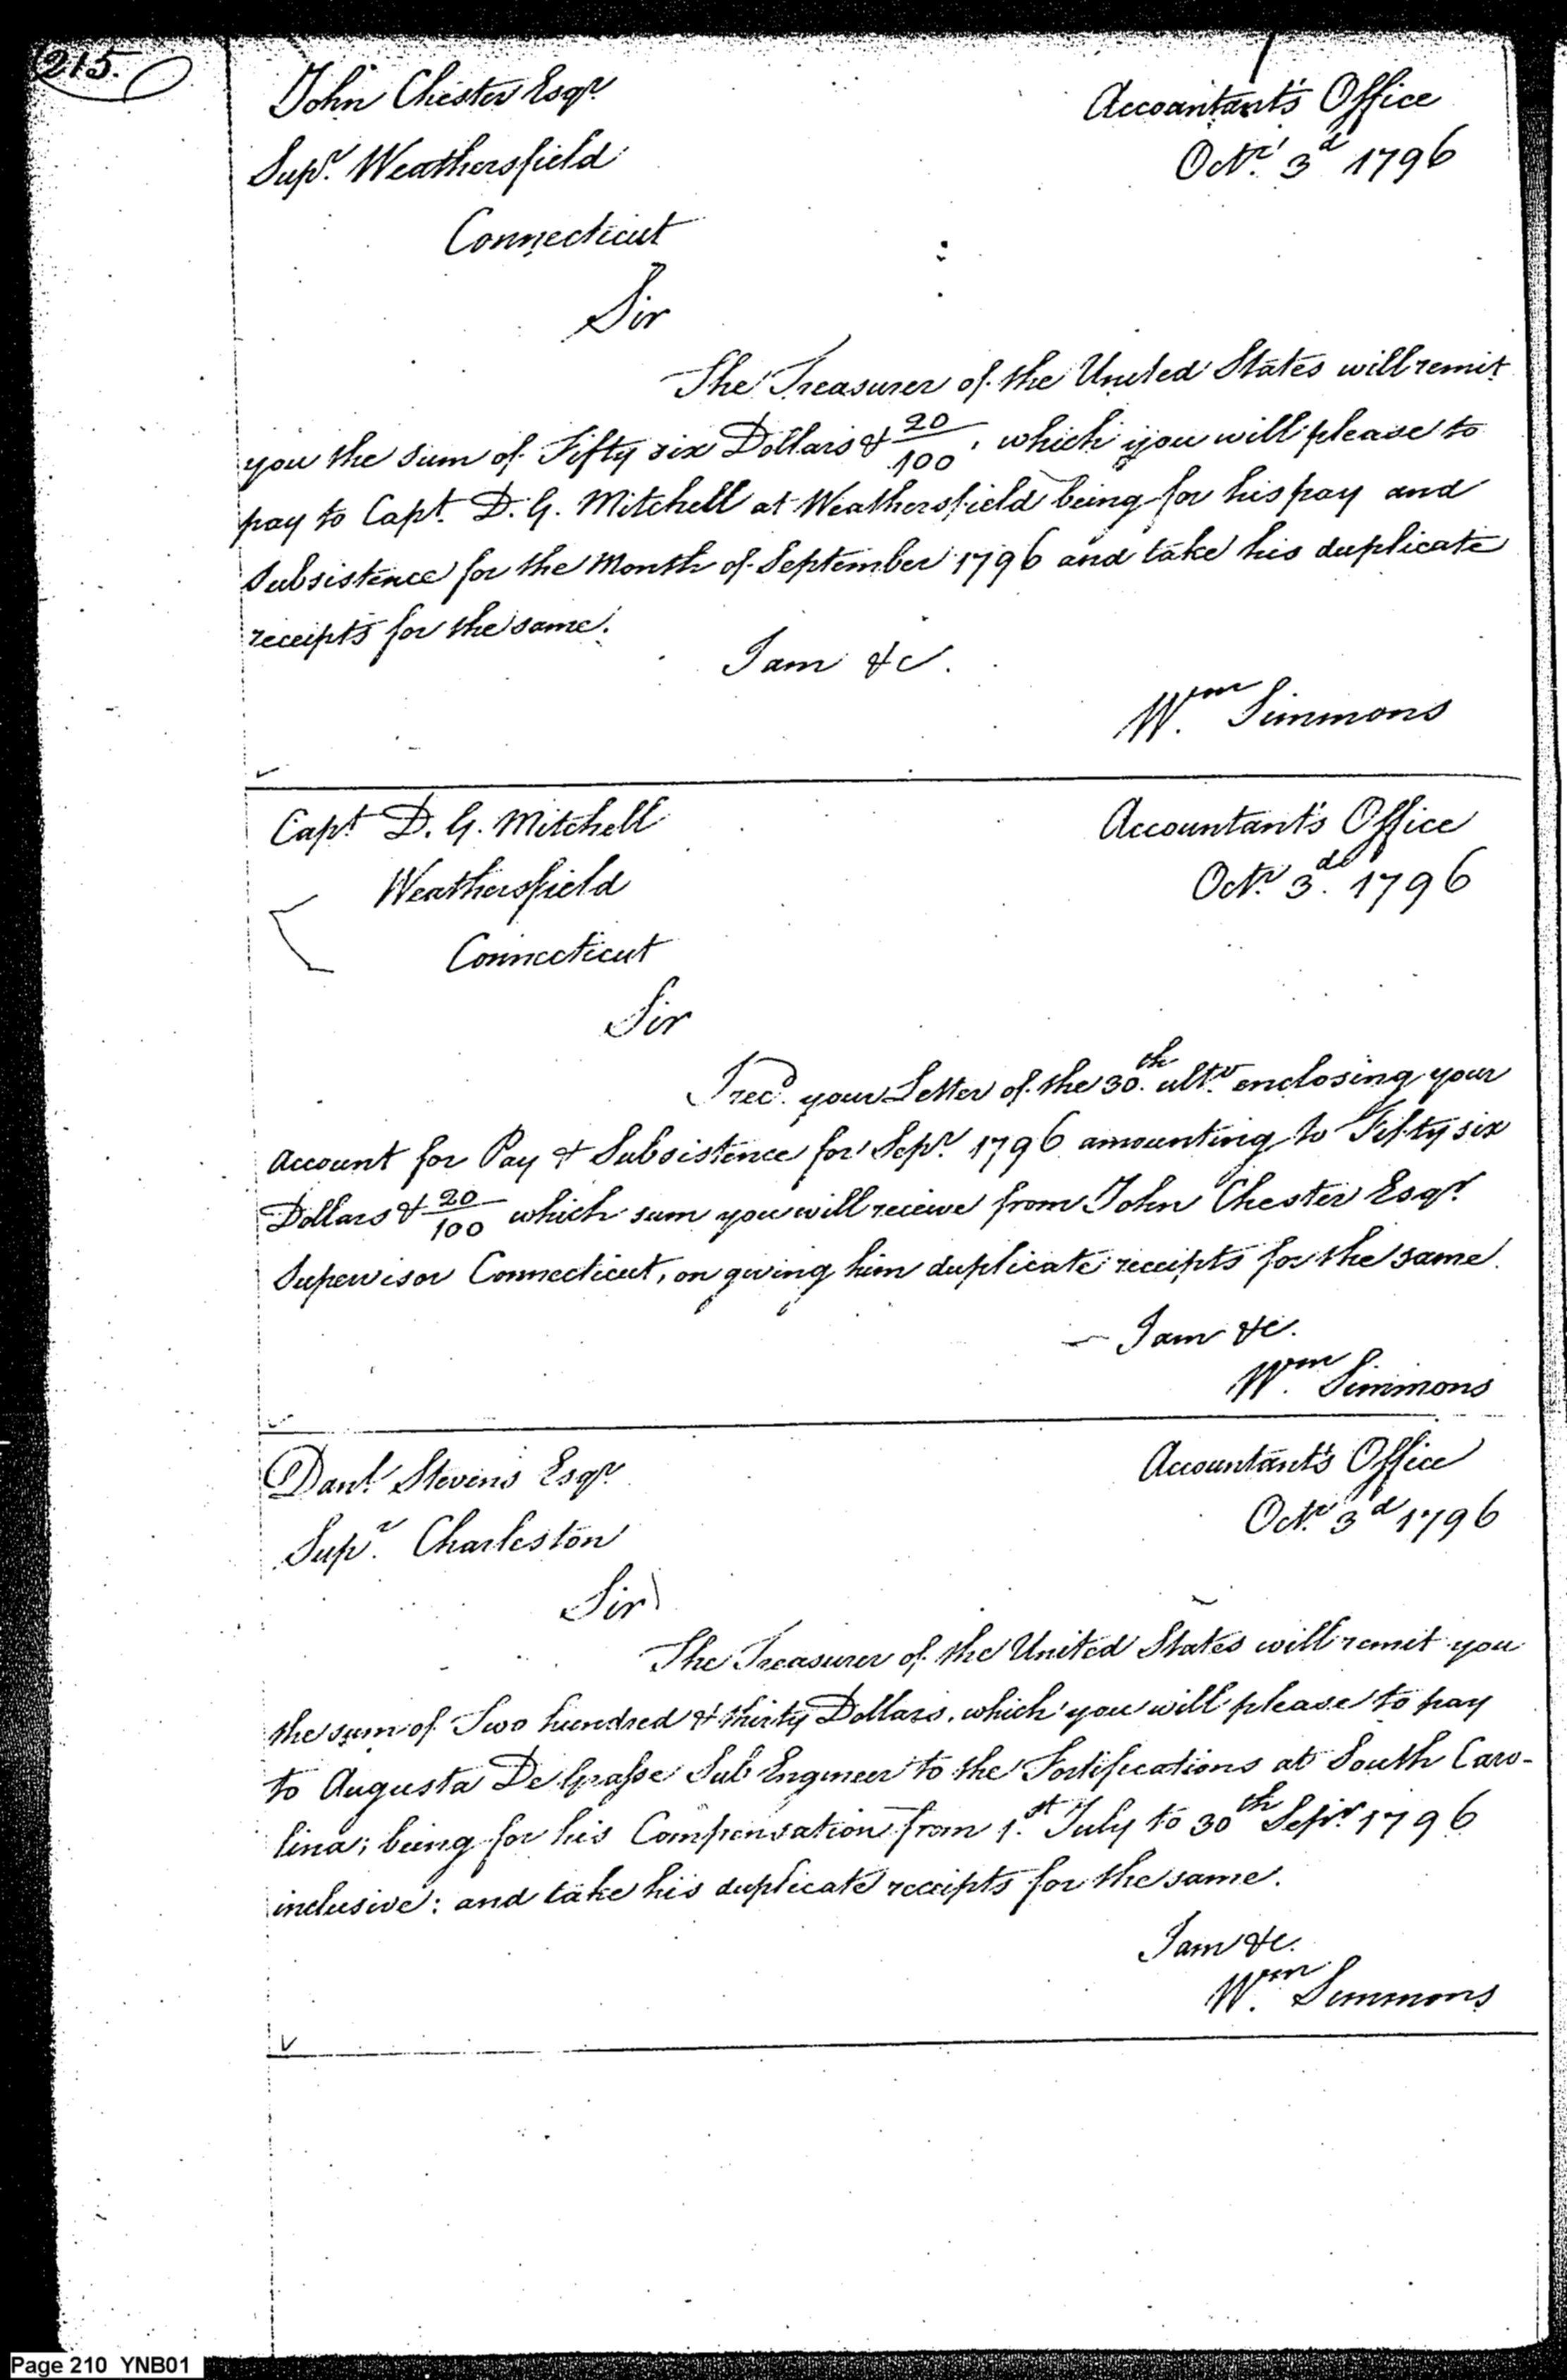 215.
John Chester Esqr.
Accountant's Office
Supr. Weathersfield
Octr. 3d 1796
Connecticut
Sir
The Treasurer of the United States will remit
you the sum of Fifty six Dollars & 20/100, which you will please to
pay to Capt. D. G. Mitchell at Weathersfield being for his pay and
Subsistence for the Month of September 1796 and take his duplicate
receipts for the same.
I am &c.
Wm. Simmons
Capt D. G. Mitchell
Accountant's Office
Weathersfield
Octr. 3d. 1796
Connecticut
Sir
I recd. your Letter of the 30th. ulto. enclosing your
account for Pay & Subsistence for Sepr. 1796 amounting to Fifty six
Dollars & 20/100 which sum you will recieve from John Chester Esqr.
Supervisor Connecticut, on giving him duplicate receipts for the same.
I am &c.
Wm. Simmons
Danl. Stevens Esqr.
Accountant's Office
Supr. Charleston
Octr. 3d 1796
Sir
The Treasurer of the United States will remit you
the sum of Two hundred & thirty Dollars, which you will please to pay
to Augusta De Grasse Sub Engineer to the Fortifications at South Caro-
lina; being for his Compensation from 1st. July to 30th Sepr. 1796
inclusive: and take his duplicate receipts for the same.
I am &c.
Wm. Simmons
Page 210 YNB01